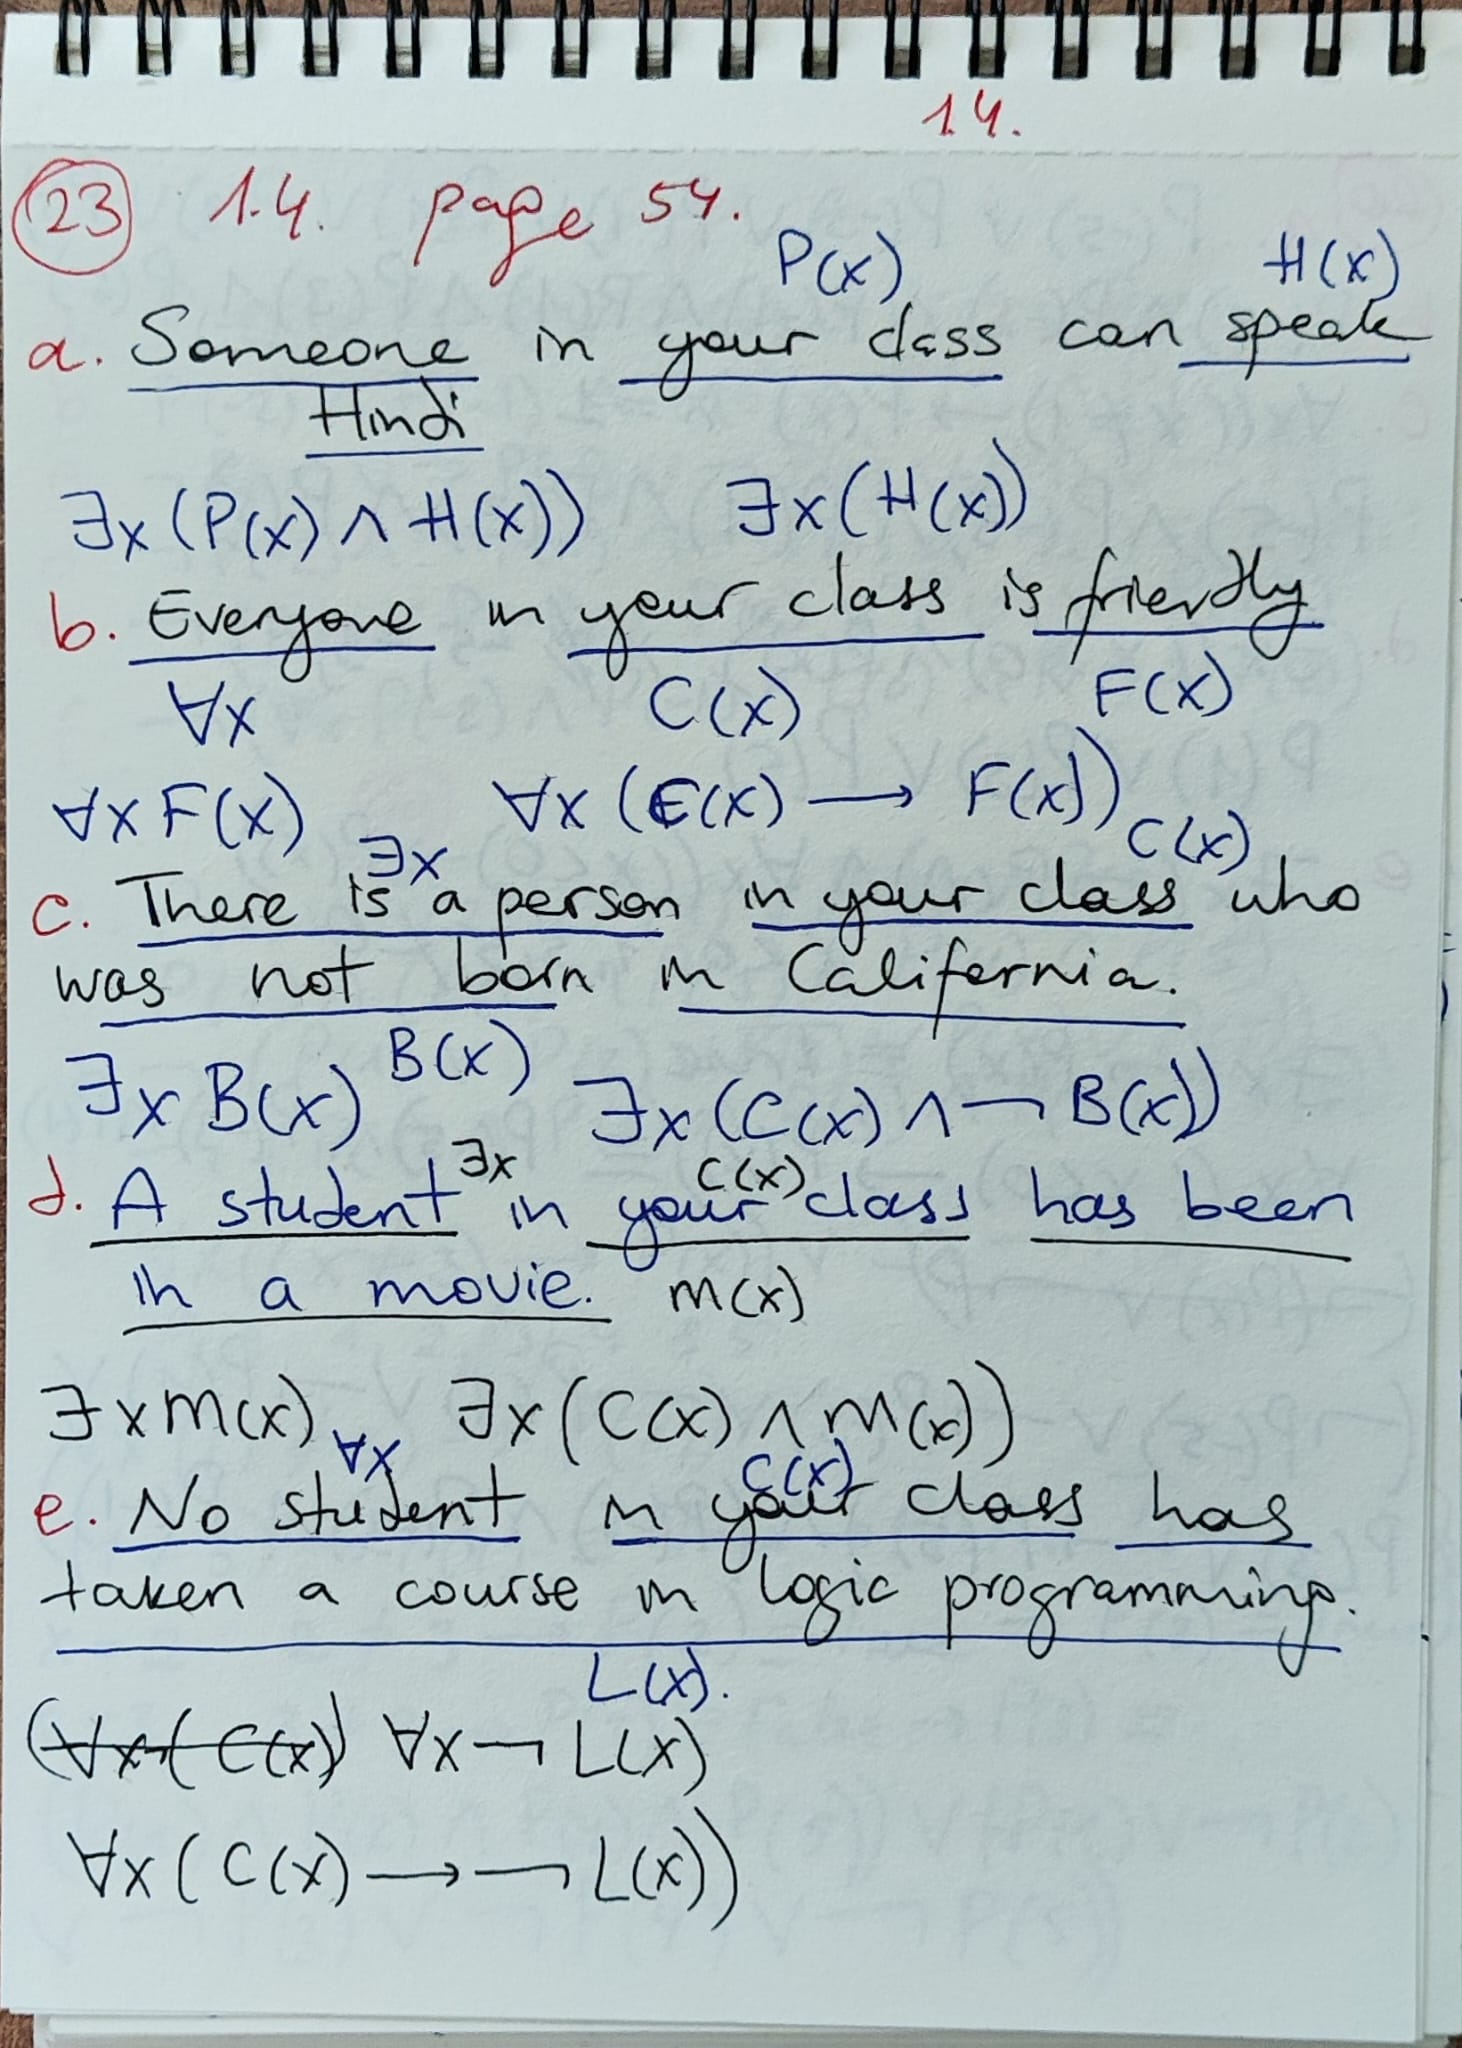 14.
23 1.4. page 54.
P(x) H(x)
a. Someone in your class can speak
Hindi
∃x(P(x) ∧ H(x)) ∃x(H(x))
b. Everyone in your class is friendly
∀x C(x) F(x)
∀x F(x) ∀x (C(x) → F(x))
∃x C(x)
c. There is a person in your class who
was not born in California.
B(x)
∃x B(x) ∃x (C(x) ∧ ¬ B(x))
∃x C(x)
d. A student in your class has been
in a movie. M(x)
∃x M(x) ∃x (C(x) ∧ M(x))
∀x C(x)
e. No student in your class has
taken a course in logic programming.
L(x).
∀x ¬ L(x)
∀x (C(x) → ¬ L(x))